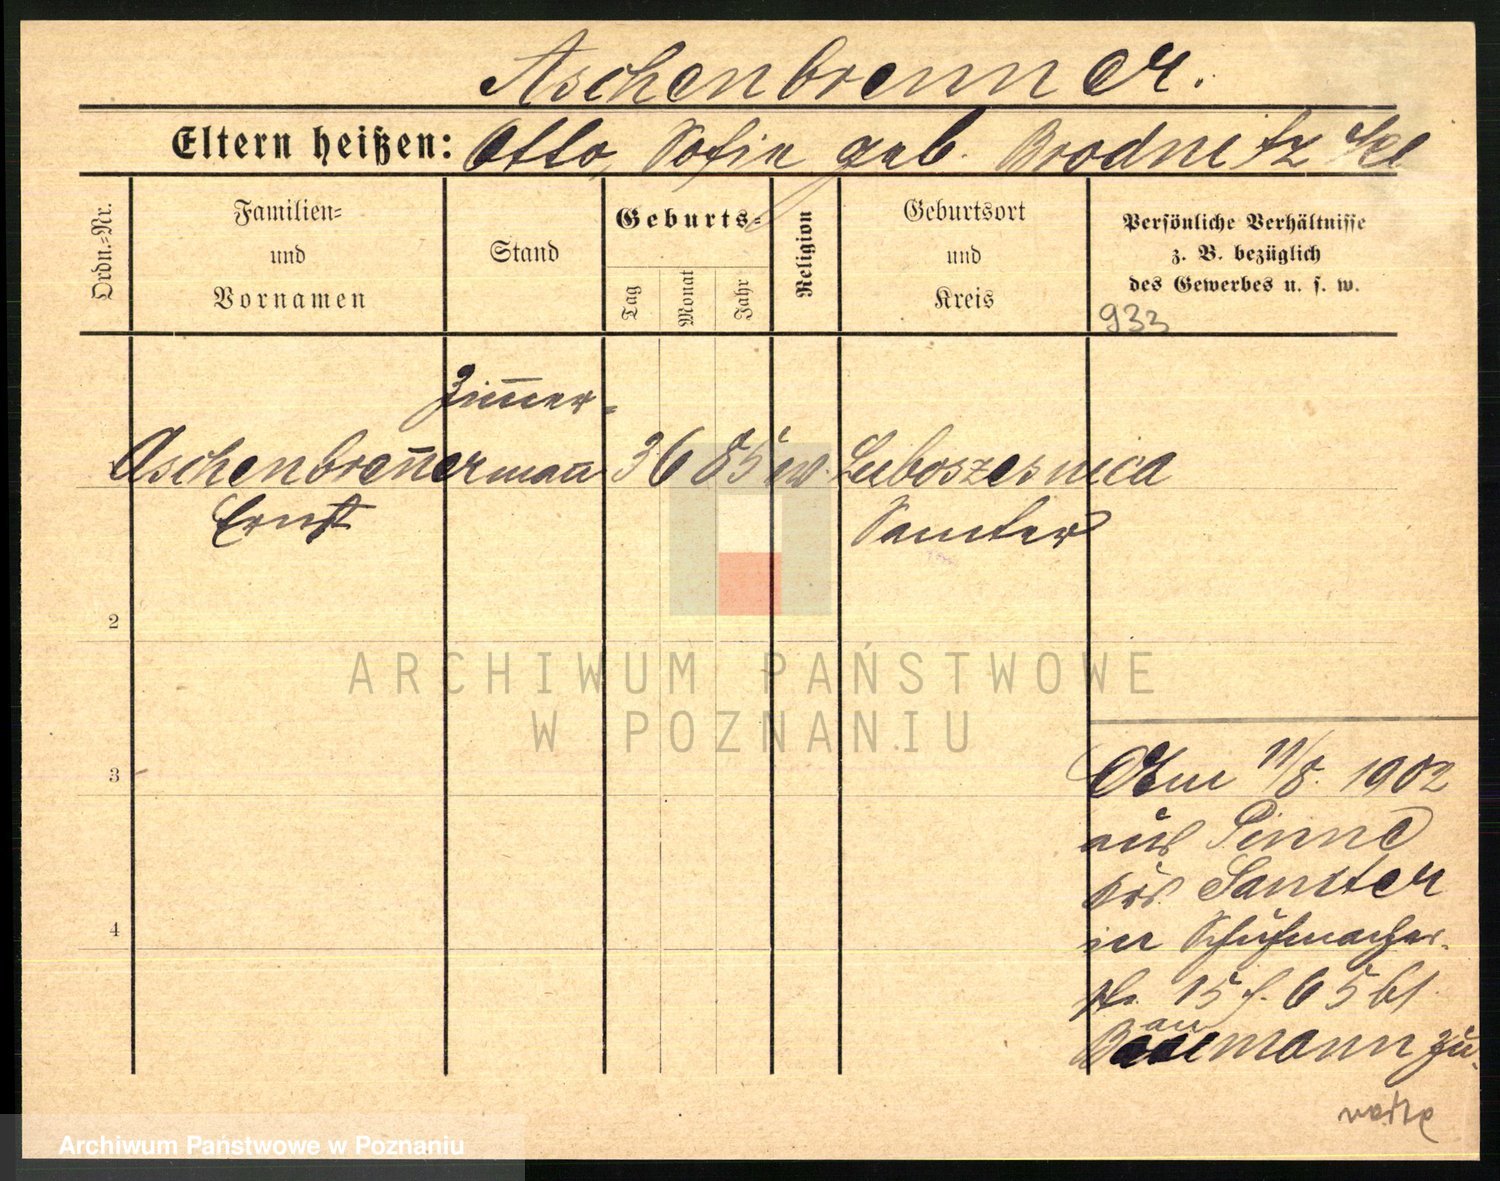 Aschenbrenner.
Eltern heißen: Otto, Sofie geb. Brodnitzke
Ordn.=Nr.
Familien=
und
Vornamen
Stand
Geburts=
Tag
Monat
Jahr
Religion
Geburtsort
und
Kreis
Persönliche Verhältnisse
z. B. bezüglich
des Gewerbes u. s. w.
933
Zim̄er=
Aschenbren̄er man̄ 3 6 85 ev. Luboszesnica
Ernst Samter
2
3
4
ARCHIWUM PAŃSTWOWE
W POZNANIU
Am 11/8. 1902
aus Pinne
Krs. Samter
in Schuhmacher=
str. 15 f. 65 bl
Baumann zu=
Archiwum Państwowe w Poznaniu